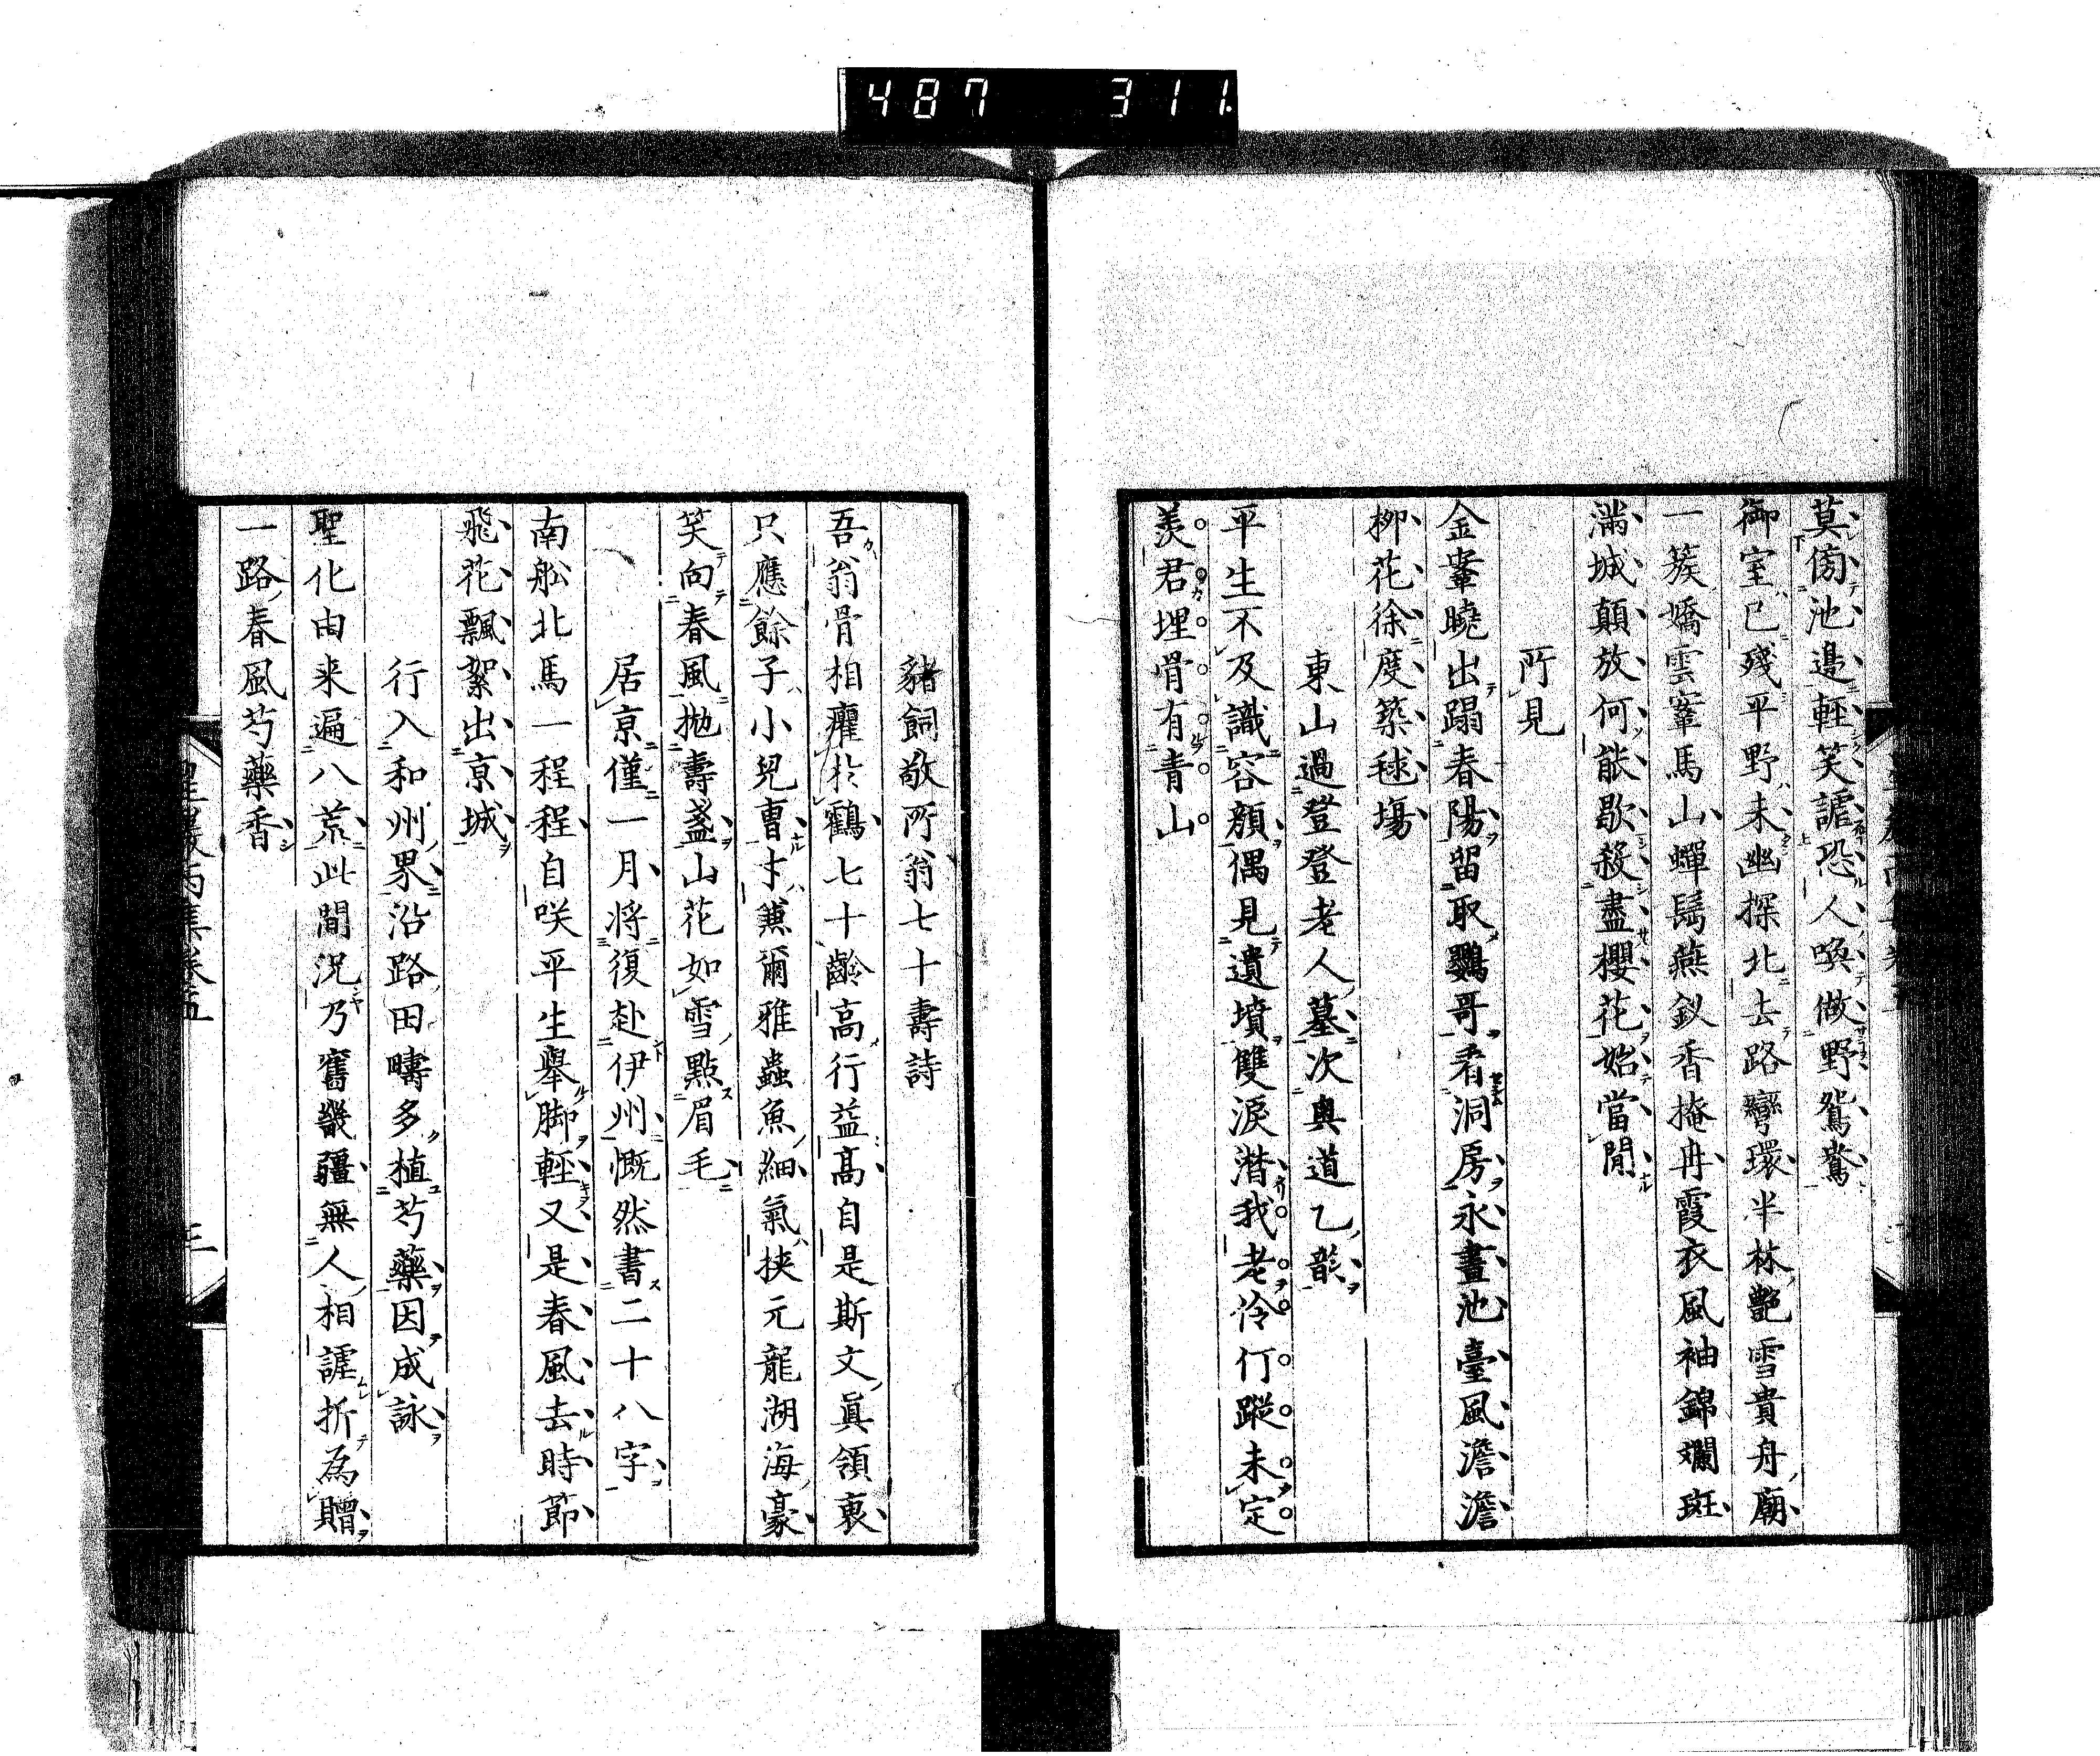 487 311
莫傍池邊輕笑謔恐人喚做野鴛鴦
御室已殘平野未幽探北去路彎環半林艷雪貴舟廟
一簇嬌雲鞍馬山蟬鬂燕釵香掩冉霞衣風袖錦斕斑
滿城顛放何能歇殺盡櫻花始當閒
所見
金輦曉出蹋春陽留取鸚哥看洞房永晝池臺風澹澹
柳花徐度築毬場
東山過登登老人墓次輿道乙韻
平生不及識容顏偶見遺墳雙淚潸我老伶仃蹤未定
羨君埋骨有青山
豬飼敬所翁七十壽詩
吾翁骨相癯於鶴七十齡高行益高自是斯文眞領袠
只應餘子小兒曹才兼爾雅蟲魚細氣挾元龍湖海豪
笑向春風拋壽盞山花如雪點眉毛
居京僅一月將復赴伊州慨然書二十八字
南舩北馬一程程自咲平生舉脚輕又是春風去時節
飛花飄絮出京城
行入和州界沿路田疇多植芍藥因成詠
聖化由来遍八荒此間況乃舊畿疆無人相謔折為贈
一路春風芍藥香